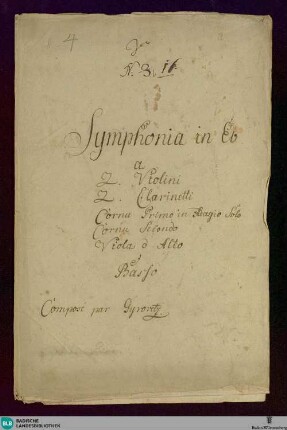 4
N. 3. 
Symphonia in Eb
a
2. Violini
2. Clarinetti
Cornu Primo in Adagio Solo
Cornu Secondo
Viola d Alto
e
Basso
Composé par Gyrowetz
BLB BADISCHE
LANDESBIBLIOTHEK